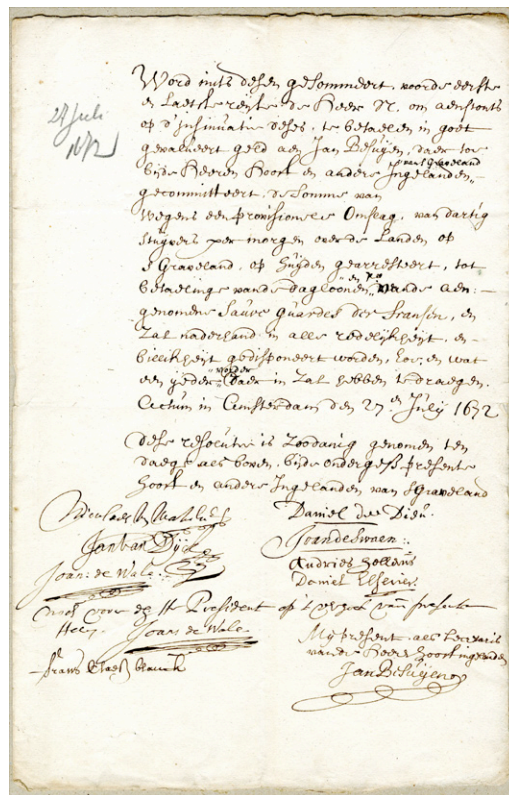 27 Juli
1672
Word mits desen gesommeert, voorde eerste
en Laetste reijse de Heer N. om aenstonts
op d'Insinuatie deses, te betaelen in goet
gevalueert geld aen Jan Besuijen, daer toe
bijde Heeren Hooft en andere Ingelanden
van sGraveland
gecommitteert, de Somme van
Wegens een provisionele Omslag, van dartig
stuijvers per morgen over de Landen op
s Graveland, op huijden gearresteert, tot
betaelinge vande dagloonen, en vande aen-
genomene Sauve guardes der Fransen, en
Zal naderhand in alle redelijkheijt, en
billikheijt gedisponeert worden, hoe, en wat
een jeder verder daer in Zal hebben te draegen.
Actum in Amsterdam den 27en July 1672
Dese resolutie is Zoodanig genomen ten
daege als boven, bijde ondergesz. presente
Hooft en andere Ingelanden van sGraveland
Daniel de Dieu.
Jan van Dijck
Joan de Swaen
Joan: de Wale
Andries
Daniel Elsevier
Noch voor de Hr President op 't versoek van presente
Heer Joan de Wale
Mij present als Secretaris
vande Heere Hooft ingelanden
Frans Claesz
Jan Besuijen